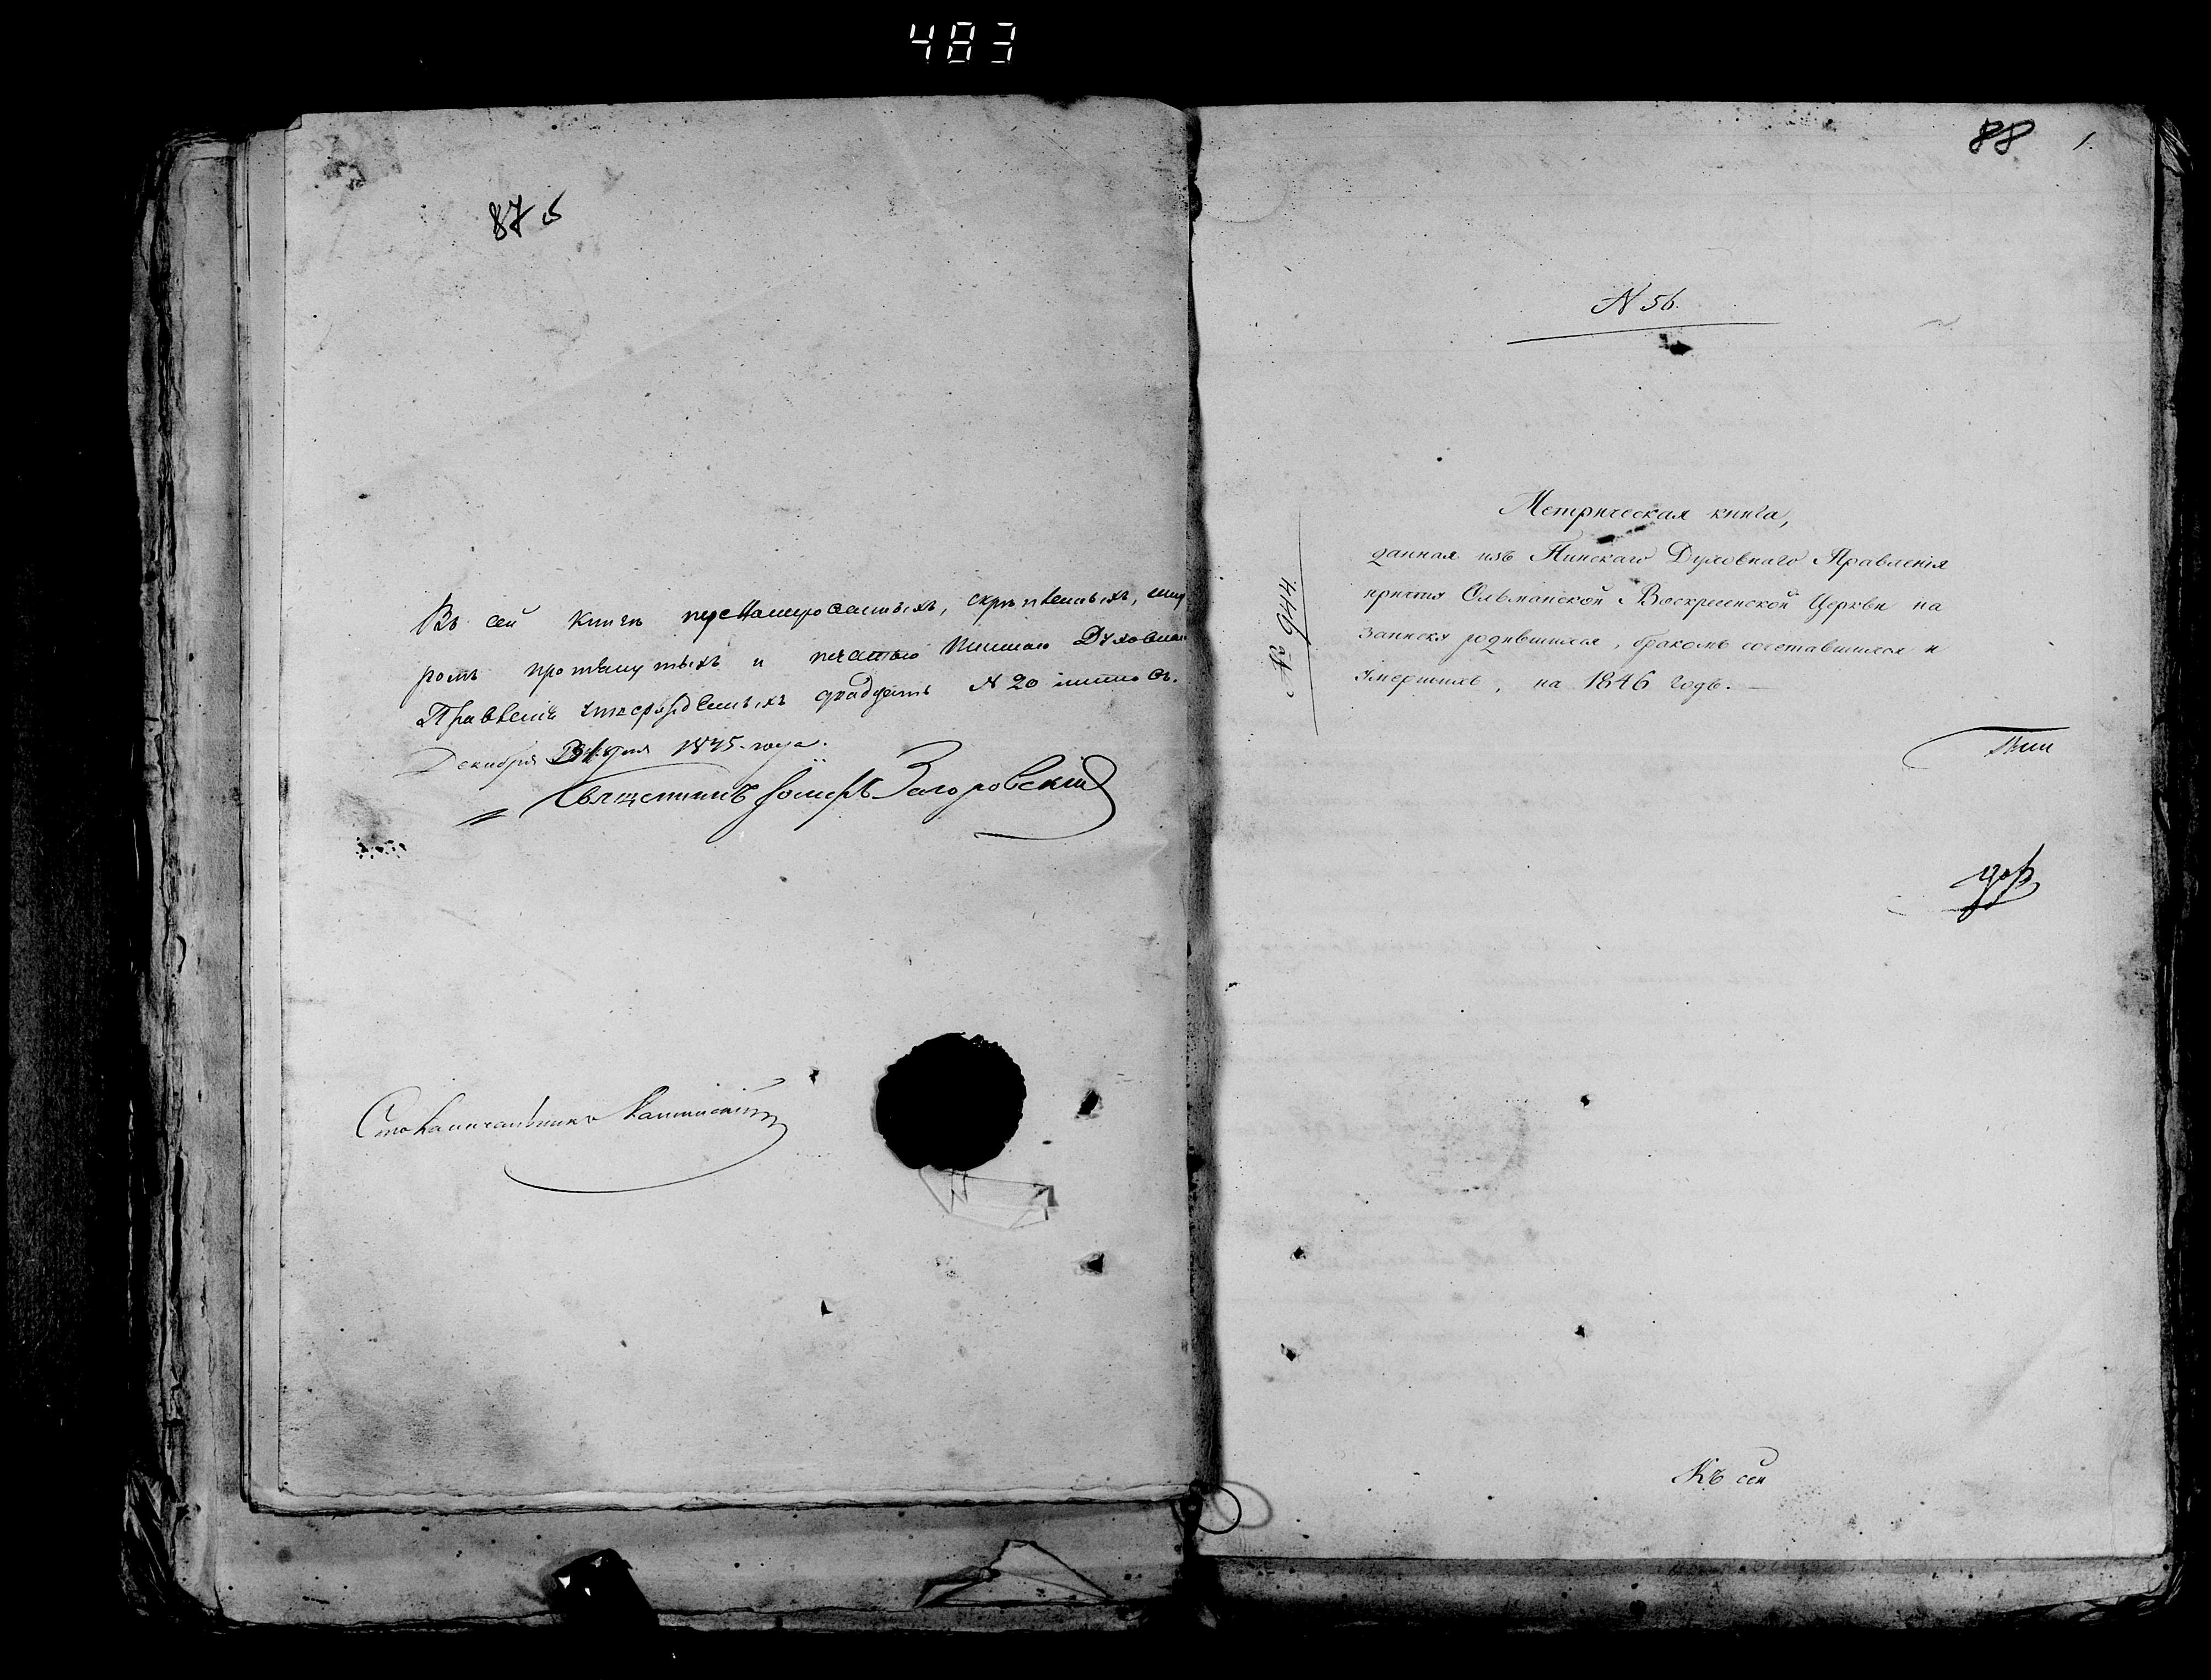 483
87 об
Въ сей книгѣ перенумерованныхъ, скрѣпленныхъ, шну
ромъ протянутыхъ и печатью Пинскаго Духовнаго
Правленія утвержденныхъ двадцать N 20 листовъ.
Декабря 1845 года.
Священникъ Іосифъ Загоровскій
Столоначальникъ
88 1.
N 56.
№ 944.
Метрическая книга,
данная изъ Пинскаго Духовнаго Правленія
причта Ольманской Воскресенской Церкви на
записку родившихся, бракомъ сочетавшихся и
Умершихъ, на 1846 годъ.
Пин
Къ сей